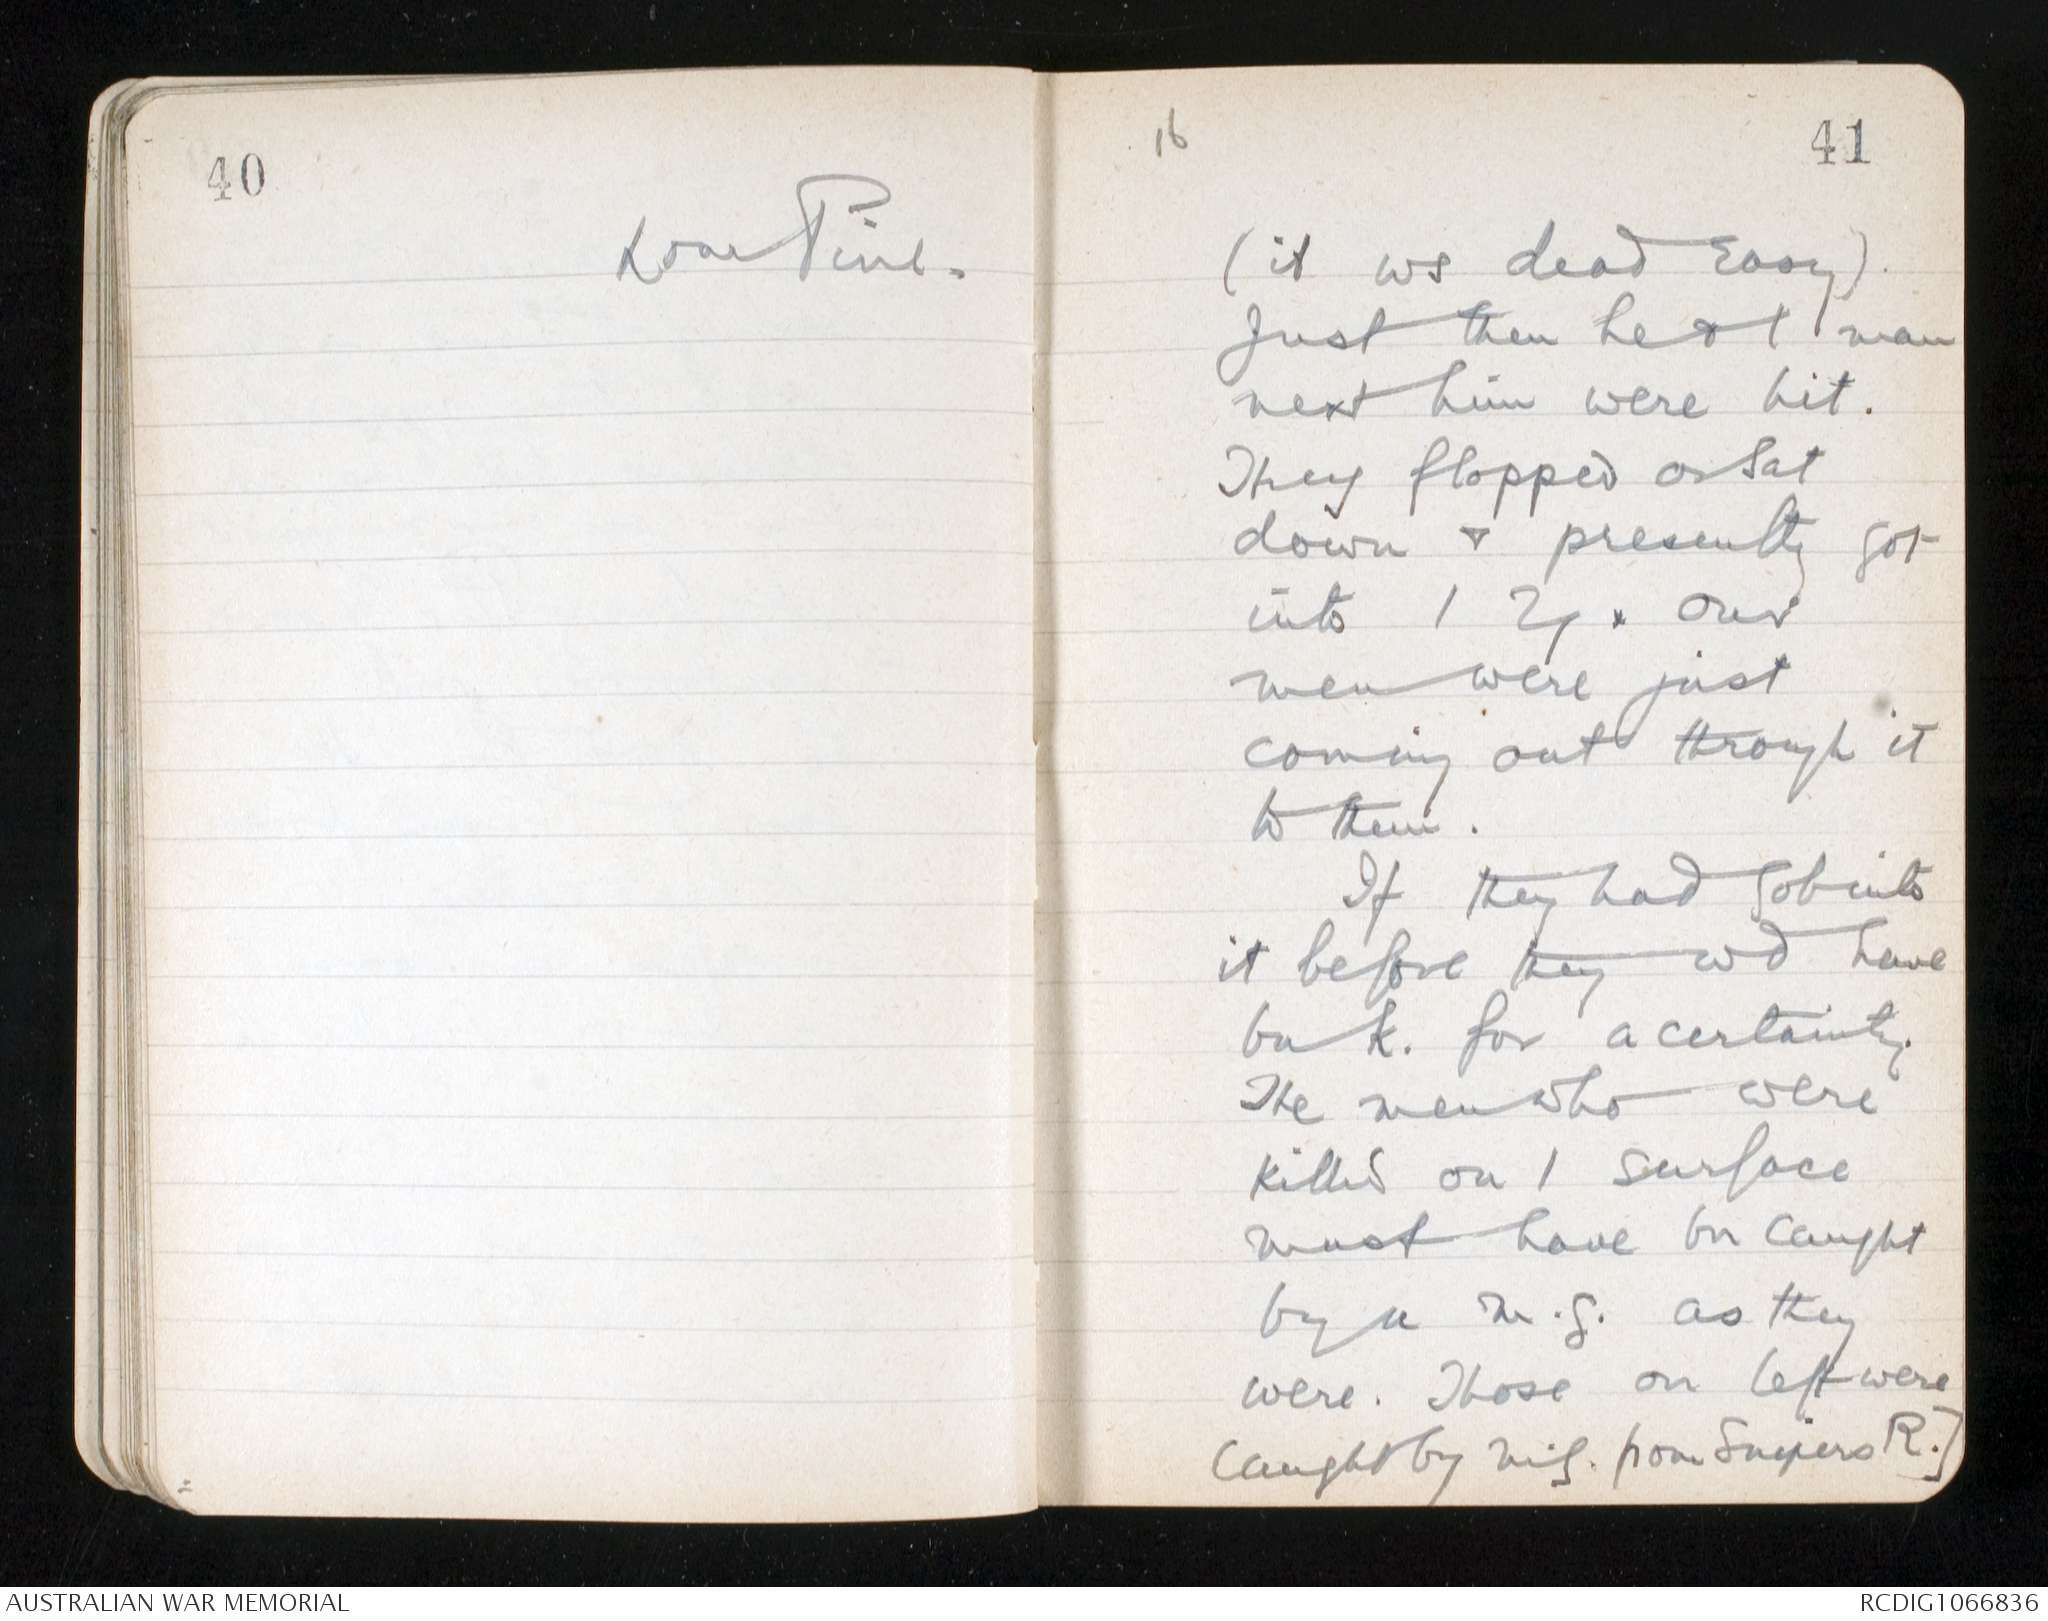 40
Lone Pine.
16
41
(it ws dead easy).
Just then he & / man
next him were hit.
They flopped or sat
down & presently got
into / . Our
men were just
coming out through it
to them.
If they had got into
it before they wd have
bn k. for a certainty.
The men who were
killed on / surface
must have bn caught
by a m.g. as they
were. Those on left were
caught by m.g. from Snipers R.]
AUSTRALIAN WAR MEMORIAL
RCDIG1066836